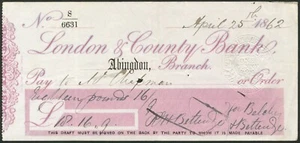 No 8/6631 April 25th 1862
London & County Bank
Abingdon, Branch.
Pay to Mr Chapman or Order
Eighteen pounds 16/
£18.16.0
THIS DRAFT MUST BE SIGNED ON THE BACK BY THE PARTY TO WHOM IT IS MADE PAYABLE